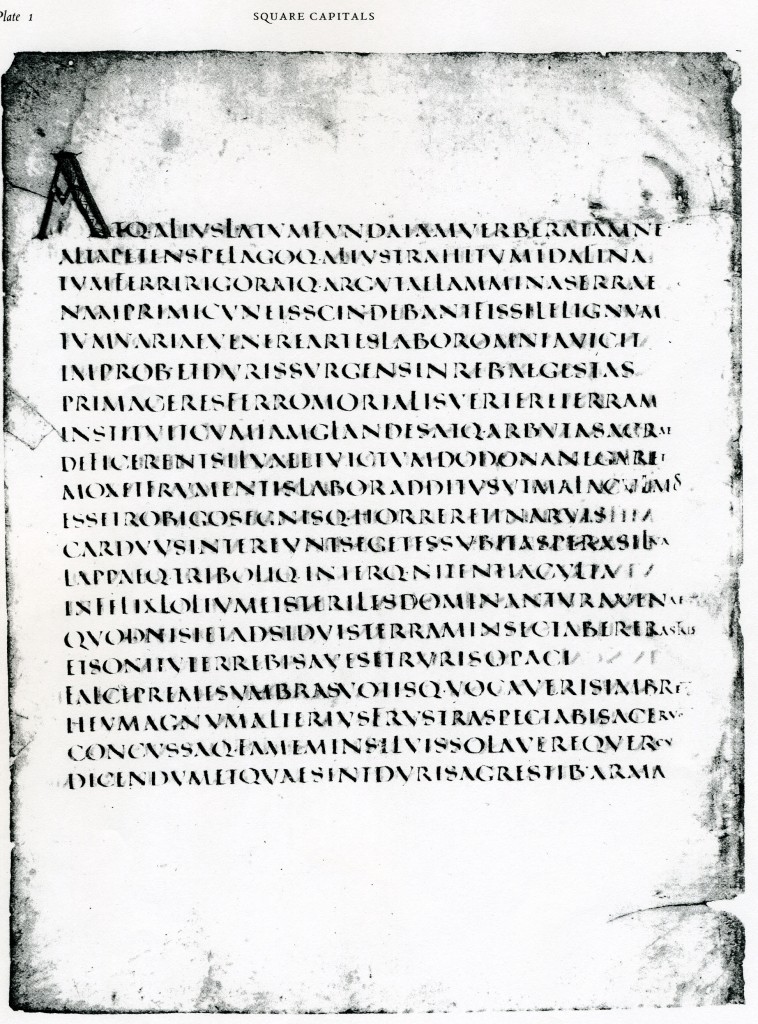 Plate 1
SQUARE CAPITALS
ATQ·ALIVSLATVMFVNDAIAMVERBERATAMNE
ALTAPETENSPELAGOQ·ALIVSTRAHITVMIDALINA
TVMFERRIRIGORATQ·ARGVTAELAMMINASERRAE
NAMPRIMICVNEISSCINDEBANTFISSILELIGNVM
TVMVARIAEVENEREARTESLABOROMNIAVICIT
IMPROB·ETDVRISSVRGENSINREB·AEGESTAS
PRIMACERESFERROMORTALISVERTERETERRAM
INSTITVITCVMIAMGLANDESATQ·ARBVTASACRAE
DEFICERENTSILVAEETVICTVMDODONANEGARET
MOXETFRVMENTISLABORADDITVSVTMALACVLMOS
ESSETROBIGOSEGNISQ·HORRERETINARVIS
CARDVVSINTEREVNTSEGETESSVBITASPERASILVA
LAPPAEQ·TRIBOLIQ·INTERQ·NITENTIACVLTA
INFELIXLOLIVMETSTERILESDOMINANTVRAVENAE
QVODNISIETADSIDVISTERRAMINSECTABERERASTRIS
ETSONITVTERREBISAVESETRVRISOPACI
FALCEPREMESVMBRASVOTISQ·VOCAVERISIMBRE
HEVMAGNVMALTERIVSFRVSTRASPECTABISACERVV
CONCVSSAQ·FAMEMINSILVISSOLAVEREQVERCV
DICENDVMETQVAESINTDVRISAGRESTIB·ARMA